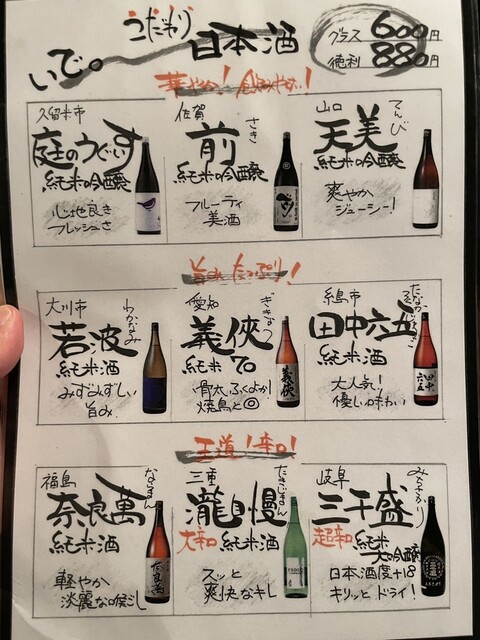 こだわり
日本酒
いで。
グラス 600円
徳利 880円
華やか！飲みやすい！
久留米市
庭のうぐいす
純米吟醸
心地良き
フレッシュさ
佐賀
前
さき
純米吟醸
フルーティ
美酒
山口
天美
てんび
純米吟醸
爽やか
ジューシー！
旨みたっぷり！
大川市
若波
わかなみ
純米酒
みずみずしい
旨み
愛知
義侠
ぎきょう
純米 70
骨太、ふくよか！
焼鳥と◎
義侠
糸島市
田中六五
純米酒
大人気！
優しい味わい
田中
六五
王道！辛口！
福島
奈良萬
ならまん
純米酒
軽やか
淡麗な喉ごし
奈良萬
三重
瀧自慢
たきじまん
大辛口 純米酒
スッと
爽快なキレ
岐阜
三千盛
みちさかり
超辛口 純米
大吟醸
日本酒度+18
キリッとドライ！